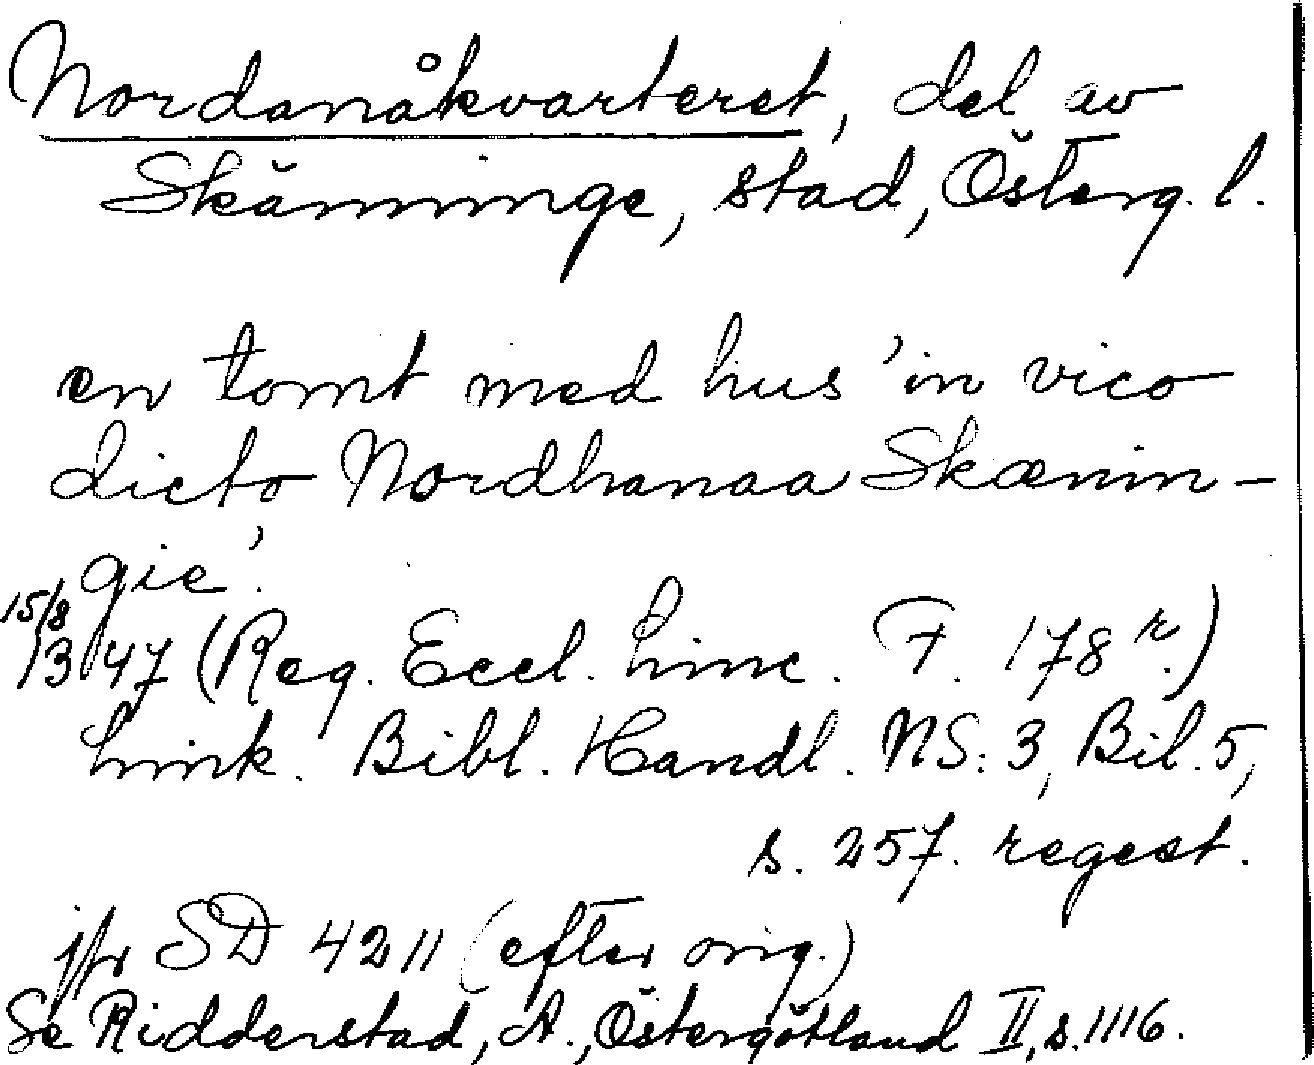 Nordanåkvarteret, del av
Skänninge, stad, Österg. l.
en tomt med hus 'in vico
dicto Nordhanaa Skænin-
gie'.
15/8
1347 (Reg. Eccl. Linc. F. 178 r.)
Link. Bibl. Handl. NS: 3, Bil. 5,
s. 257. regest.
jfr SD 4211 (efter orig.)
Se Ridderstad, A., Östergötland II, s. 1116.